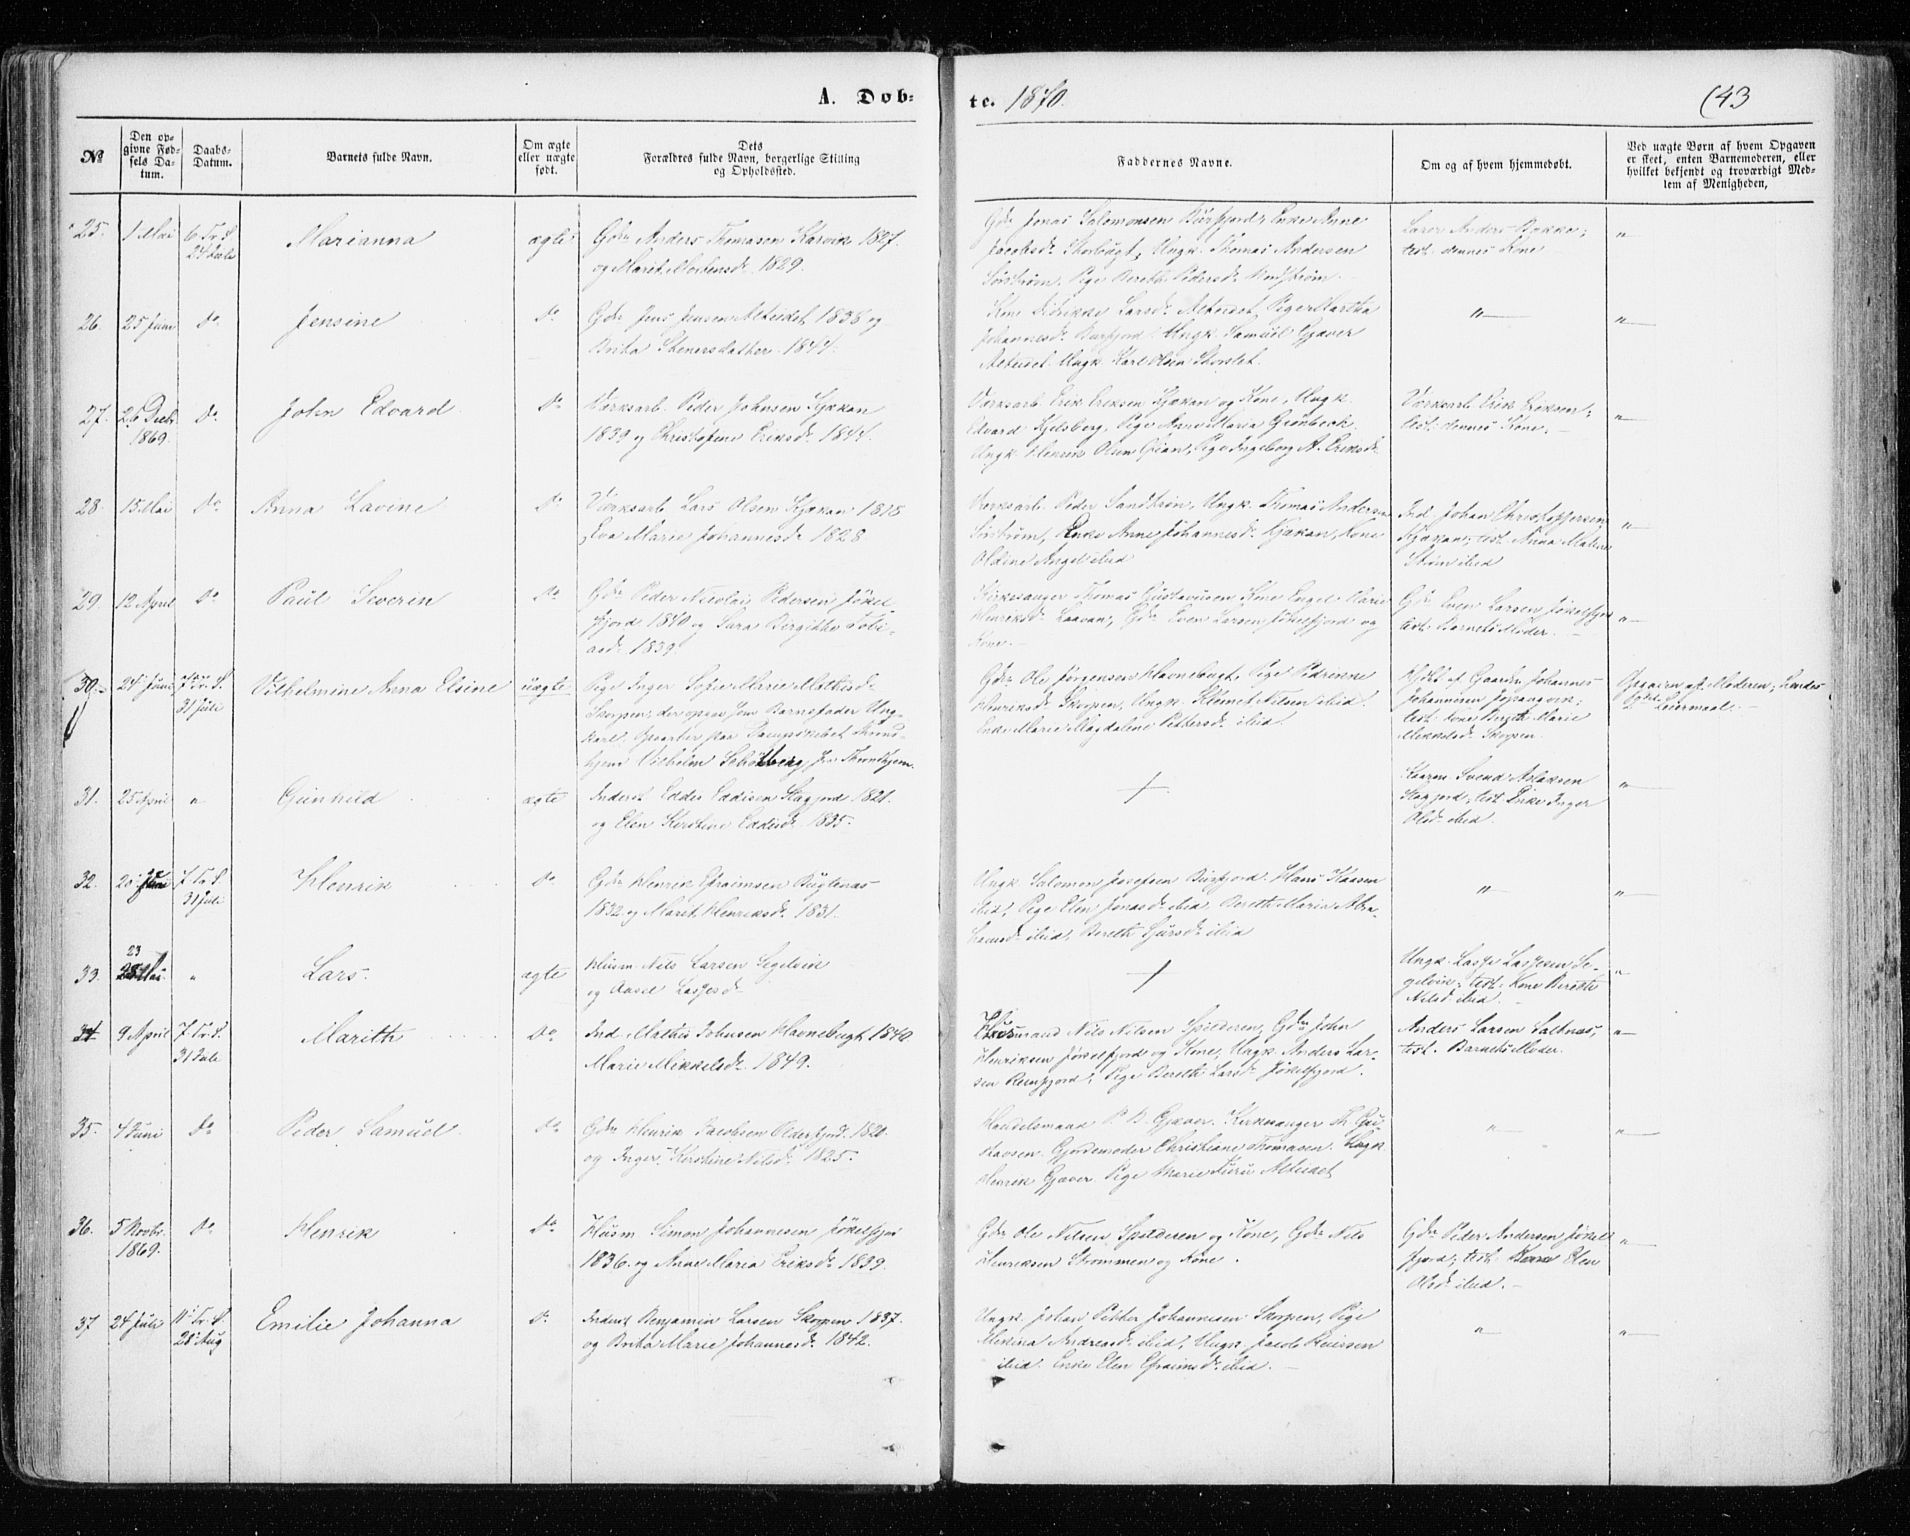 A. Dob-
te. 1870.
(43
No
Den op-
givne Fød-
sels Da-
tum.
Daabs-
Datum.
Barnets fulde Navn.
Om ægte
eller uægte
født.
Dets
Forældres fulde Navn, borgerlige Stilling
og Opholdssted.
Faddernes Navne.
Om og af hvem hjemmedøbt.
Ved uægte Børn af hvem Opgaven
er skeet, enten Barnemoderen, eller
hvilket bekjendt og troværdigt Med-
lem af Menigheden,
25. 1 Mai 6 Tr. S. Marianna ægte Gdr Anders Thomasen Karvik 1827
24 Juli og Marit Mortensd. 1829.
Gdr Jonas Salomonsen Burfjord, Enke Anne
Ungk. Thomas Andersen
Sørstrøm, Pige Bereth Pedersd.
Lærer Anders Bakke;
test. dennes Kone
26. 25 Juni Do Jensine Do Gdr Jens Jensen Alteidet 1836 og
Brita Stenersdatter 1844.
Kone Didrikke Larsd. Alteidet, Pige Martha
Johannesd. Burfjord, Ungk. Samuel Gjæver
Alteidet. Ungk. Karl Olsen Storslet.
27. 26 Decbr. Do John Edvard Do Værksarb. Peder Johnsen Kjækan
1869. 1839 og Christofine Eriksd. 1844.
Værksarb. Erik Eriksen Kjækan og Kone, Ungk.
Edvard Kjelsberg, Pige Anne Maria Grønbeck.
Ungk. Henrik Olsen Pige Ingeborg A. Eriksd.
Værksarb. Erik Eriksen;
test. dennes Kone.
28. 15 Mai Do Anna Lavine Do Værksarb. Lars Olsen Kjækan 1818
Eva Marie Johannesd. 1828.
Værksarb. Peder Sandstrøm, Ungk. Thomas Andersen
Sørstrøm, Enke Anne Johannesd. Kjækan, Kone
Oldine Angel ibid
Ind. Johan Christophersen
Kjækan; test. Anna
Strøm ibid
29. 12 April Do Paul Severin Do Gdr Peder Nicolai Pedersen Jøkel-
fjord 1840 og Sara Bergithe Tobi-
asd. 1839.
Kirkesanger Thomas Gustavusen Kone Engel Marie
Henriksd. Gdr Even Larsen Jøkelfjord og
Kone.
Gdr Even Larsen Jøkelfjord
test. Barnets Moder.
30. 24 Juni 7 Tr. S. Vilhelmine Anna Elsine uægte Pige Inger Sofie Marie Mathisd.
31 Juli Skorpen; der opgav som Barnefader Ung-
karl paa Dampskibet Thrond-
hjem Vilhelm fra Throndhjem.
Gdr Ole Jørgensen Havnebugt, Pige Pedrinne
Henriksd. Skorpen, Ungk. Klemet Nilsen ibid.
Enke Marie Magdalene Pettersd. ibid.
Hjdbt af Gaardm. Johannes
Johannesen
test. Kone Marie
Mikkelsd. Skorpen.
Opgaven af Moderen; hendes
Leiermaal.
31. 25 April " Gunhild ægte Inderst Eddis Eddisen 1821.
og Elen Kirstine Eddisd. 1835.
Svend Aslaksen
test. Enke Inger
Olsd. ibid.
32. 20 Juni 7 Tr. S. Henrik Do Gdr Henrik Efraimsen Bugtenæs
31 Juli 1832 og Marit Henriksd. 1831.
Ungk. Salomon Josefsen Burfjord. Hans
ibid, Pige Elen Jonasd. ibid. Bereth Maria Abra-
hamsd. ibid, Bereth ibid
33. 23 Mai " Lars. ægte Husm. Nils Larsen Segelvik
og Aasel Lassesd.
Ungk. Lasse Lassesen Se-
gelvik; test. Kone Bereth
Nilsd. ibid.
34 9 April 7 Tr. S. Marith Do Ind. Mathis Johnsen Havnebugt 1840
31 Juli Marie Mikkelsd. 1849.
Husmand Nils Nilsen Spilderen, Gdr John
Henriksen Jøkelfjord og Kone, Ungk. Anders Lar-
sen Reinfjord, Pige Bereth Larsd. Jøkelfjord.
Anders Larsen Saltnæs,
test. Barnets Moder.
35. 4 Juni Do Peder Samuel Do Gdr Henrik Jacobsen Olderfjord 1820.
og Inger Kirstine Nilsd. 1825.
Handelsmand P. B. Gjæver. Kirkesanger Th. Gu-
stavsen. Gjordemoder Christiane Thomasen. Ungk.
Henrik Gjæver. Pige Marie Alteidet
36. 5 Novbr. Do Henrik Do Husm. Simon Johannesen Jøkelfjord
1869. 1836. og Anne Maria Eriksd. 1839.
Gdr Ole Nilsen Spilderen og Kone, Gdr Nils
Henriksen Strømmen og Kone.
Gdr Peder Andersen Jøkel-
fjord; test. Kone Elen
Olsd. ibid.
37 24 Juli 11 Tr. S. Emilie Johanna Do Inderst Benjamin Larsen Skorpen 1837.
28 Aug og Brita Marie Johannesd. 1842.
Ungk. Johan Petter Johannesen Skorpen, Pige
Andreasd. ibid, Ungk. Jacob
ibid. Enke Elen Efraimsd. ibid.